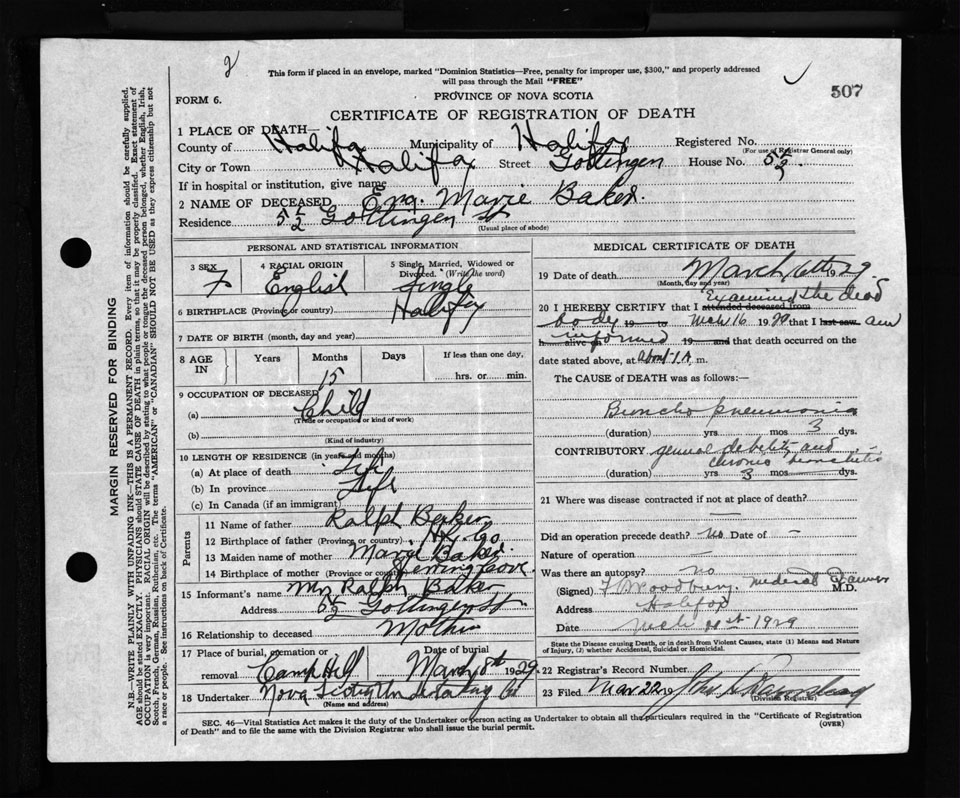 2
This form if placed in an envelope, marked "Dominion Statistics—Free, penalty for improper use, $300," and properly addressed
will pass through the Mail "FREE"
507
FORM 6.
PROVINCE OF NOVA SCOTIA
CERTIFICATE OF REGISTRATION OF DEATH
1 PLACE OF DEATH—
County of Halifax Municipality of Halifax Registered No.
(For use of Registrar General only)
City or Town Halifax Street Gottingen House No. 5 1/2
If in hospital or institution, give name
2 NAME OF DECEASED Marie Baker
Residence 5 1/2 Gottingen St
(Usual place of abode)
PERSONAL AND STATISTICAL INFORMATION
3 SEX F
4 RACIAL ORIGIN English
5 Single, Married, Widowed or Divorced. (Write the word) Single
6 BIRTHPLACE (Province or country) Halifax
7 DATE OF BIRTH (month, day and year)
8 AGE IN Years Months 15 Days If less than one day, hrs. or min.
9 OCCUPATION OF DECEASED
(a) Child
(Trade or occupation or kind of work)
(b)
(Kind of industry)
10 LENGTH OF RESIDENCE (in years and months)
(a) At place of death Life
(b) In province Life
(c) In Canada (if an immigrant)
Parents
11 Name of father Ralph Baker
12 Birthplace of father (Province or country)
13 Maiden name of mother Marie Baker
14 Birthplace of mother (Province or country) Herring Cove
15 Informant's name Mrs Ralph Baker
Address 5 1/2 Gottingen St
16 Relationship to deceased Mother
17 Place of burial, cremation or removal Camp Hill Date of burial March 8th 1929
18 Undertaker Nova Scotia Undertaking Co
(Name and address)
MEDICAL CERTIFICATE OF DEATH
19 Date of death March 6th 1929
(Month, day and year)
20 I HEREBY CERTIFY that I attended deceased from Examined the dead
body 19 to Mch 16 1929 that I last saw and
h alive informed 19 and that death occurred on the
date stated above, at About 1 A m.
The CAUSE of DEATH was as follows:—
Broncho pneumonia
(duration) yrs mos 3 dys.
CONTRIBUTORY general debility and
chronic bronchitis
(duration) yrs 3 mos dys.
21 Where was disease contracted if not at place of death?
Did an operation precede death? no Date of —
Nature of operation —
Was there an autopsy? no
(Signed) F. Woodbury, Medical Examiner M.D.
Address Halifax
Date Mch 21st 1929
State the Disease causing Death, or in death from Violent Causes, state (1) Means and Nature
of Injury, (2) whether Accidental, Suicidal or Homicidal.
22 Registrar's Record Number
23 Filed Mar 22 19 John
(Division Registrar)
SEC. 46—Vital Statistics Act makes it the duty of the Undertaker or person acting as Undertaker to obtain all the particulars required in the "Certificate of Registration
of Death" and to file the same with the Division Registrar who shall issue the burial permit.
(OVER)
MARGIN RESERVED FOR BINDING
N.B.—WRITE PLAINLY WITH UNFADING INK—THIS IS A PERMANENT RECORD. Every item of information should be carefully supplied.
AGE should be stated EXACTLY. PHYSICIANS should STATE CAUSE OF DEATH in plain terms, so that it may be properly classified. Exact statement of
OCCUPATION is very important. RACIAL ORIGIN will be described by stating to what people or tongue the deceased person belonged, whether English, Irish,
Scotch, French, German, Russian, Ruthenian, etc. The terms "AMERICAN" or "CANADIAN" SHOULD NOT BE USED as they express citizenship but not
a race or people. See instructions on back of Certificate.